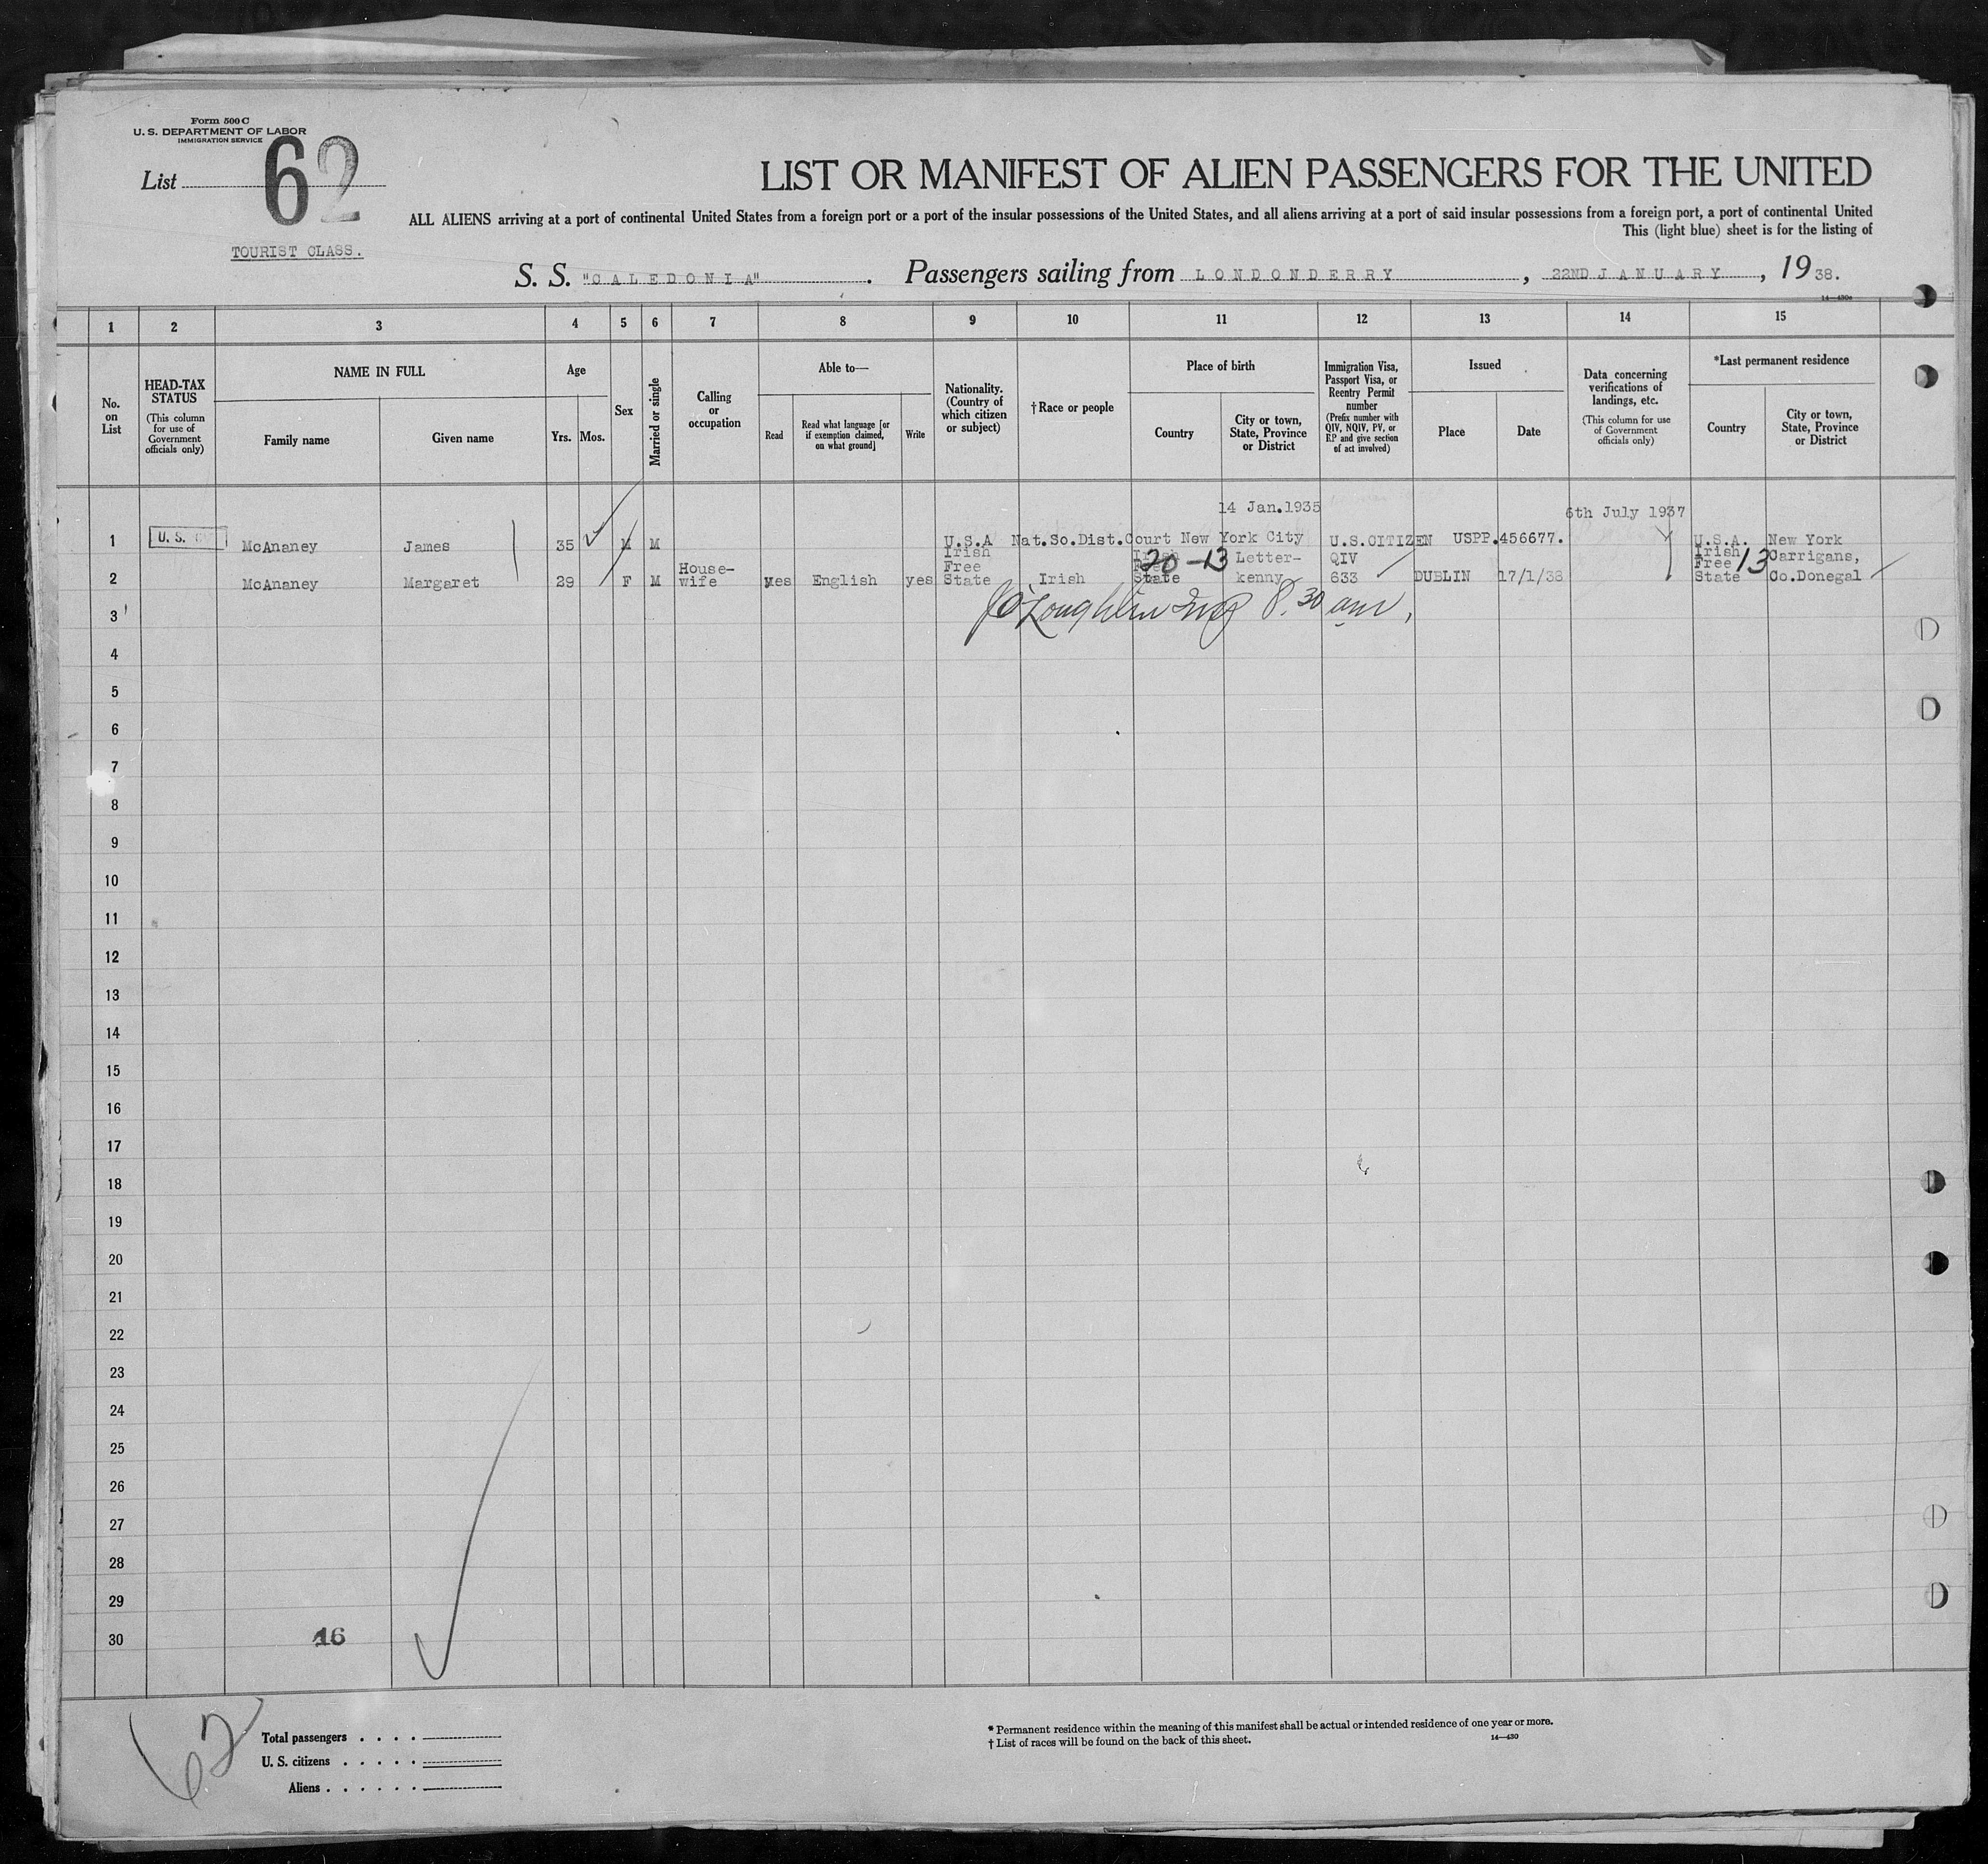 Form 500 C
U. S. DEPARTMENT OF LABOR
IMMIGRATION SERVICE
List 62
TOURIST CLASS.
LIST OR MANIFEST OF ALIEN PASSENGERS FOR THE UNITED
ALL ALIENS arriving at a port of continental United States from a foreign port or a port of the insular possessions of the United States, and all aliens arriving at a port of said insular possessions from a foreign port, a port of continental United
This (light blue) sheet is for the listing of
S. S. "CALEDONIA". Passengers sailing from LONDONDERRY, 22ND JANUARY, 1938.
14—430a
1 2 3 4 5 6 7 8 9 10 11 12 13 14 15
No. on List
HEAD-TAX STATUS
(This column for use of Government officials only)
NAME IN FULL
Family name
Given name
Age
Yrs. Mos.
Sex
Married or single
Calling or occupation
Able to—
Read
Read what language [or if exemption claimed, on what ground]
Write
Nationality. (Country of which citizen or subject)
†Race or people
Place of birth
Country
City or town, State, Province or District
Immigration Visa, Passport Visa, or Reentry Permit number
(Prefix number with QIV, NQIV, PV, or RP and give section of act involved)
Issued
Place
Date
Data concerning verifications of landings, etc.
(This column for use of Government officials only)
*Last permanent residence
Country
City or town, State, Province or District
14 Jan.1935 6th July 1937
1 U. S. McAnaney James 35 M M U.S.A Nat.So.Dist.Court New York City U.S.CITIZEN USPP.456677. U.S.A. New York
2 McAnaney Margaret 29 F M House-wife yes English yes Irish Free State Irish Irish Free State 20-13 Letter-kenny QIV 633 DUBLIN 17/1/38 Irish Free State 13 Carrigans, Co.Donegal
3 O'Loughlin 8.30 am,
4
5
6
7
8
9
10
11
12
13
14
15
16
17
18
19
20
21
22
23
24
25
26
27
28
29
30
16
62
Total passengers
U. S. citizens
Aliens
* Permanent residence within the meaning of this manifest shall be actual or intended residence of one year or more.
† List of races will be found on the back of this sheet.
14—430